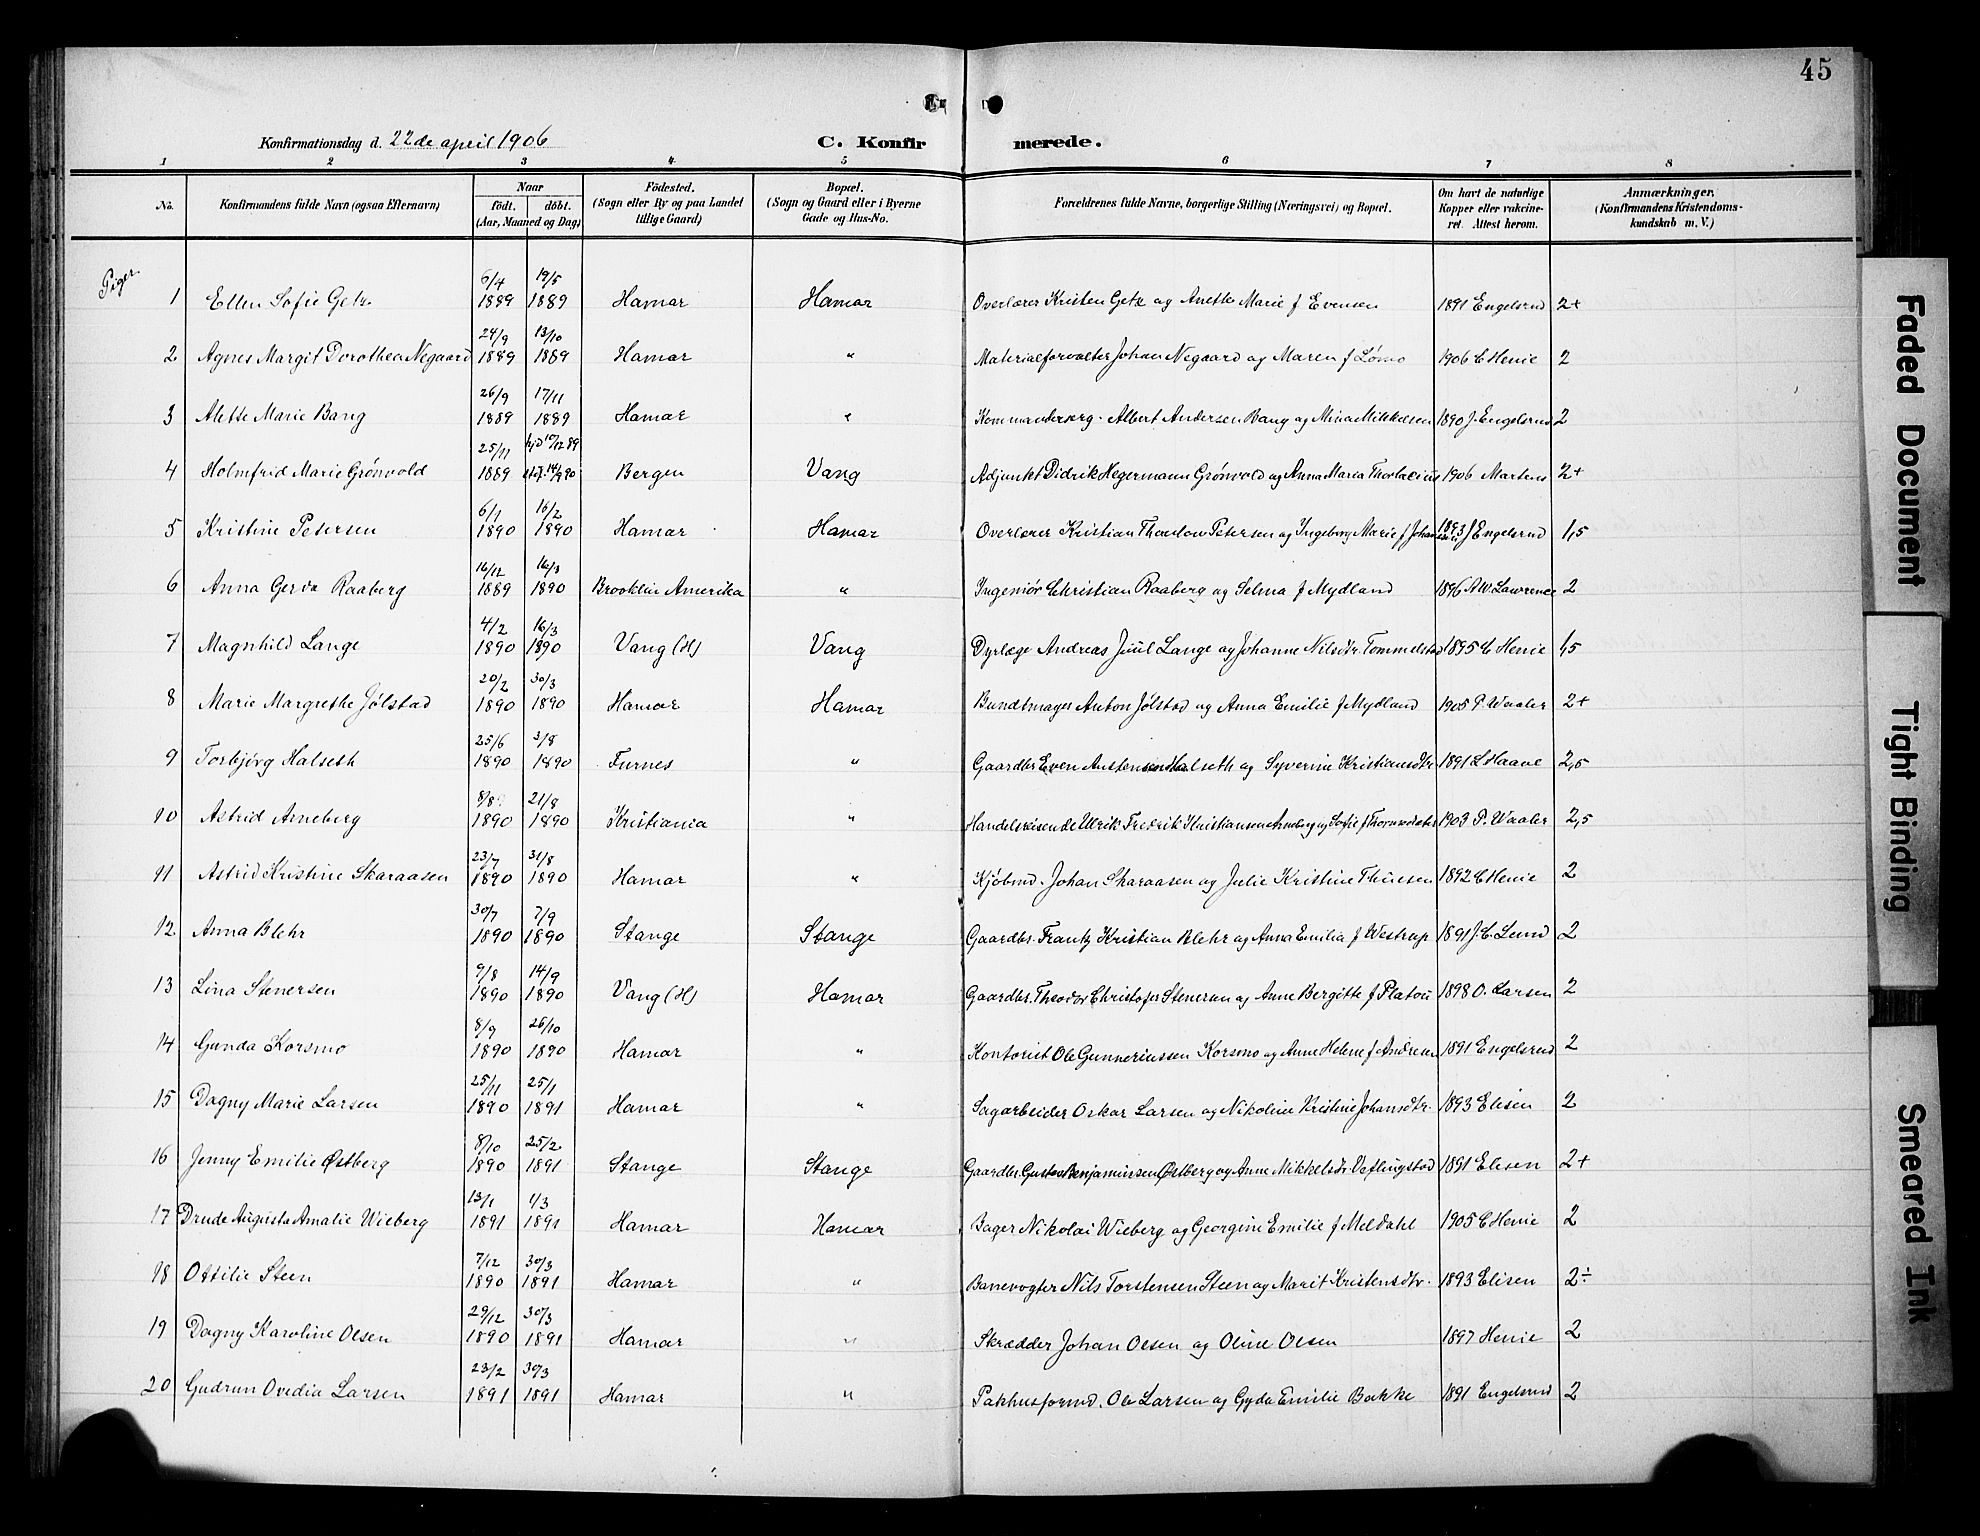 45
Konfirmationsdag d. 22de april 1906 C. Konfirmerede.
1 2 3 4 5 6 7 8
No. Konfirmandens fulde Navn (ogsaa Efternavn) Naar født. døbt. (Aar, Maaned og Dag) Fødested. (Sogn eller By og paa Landet tillige Gaard) Bopæl. (Sogn og Gaard eller i Byerne Gade og Hus-No. Forældrenes fulde Navne, borgerlige Stilling (Næringsvei) og Bopæl. Om havt de naturlige Kopper eller vakcineret. Attest herom. Anmærkninger. (Konfirmandens Kristendomskundskab m. V.)
Piger.
1 Ellen Sofie Getz 6/4 1889 19/5 1889 Hamar Hamar Overlærer Kristen Getz og Anette Marie f Evensen 1891 Engelsrud 2+
2 Agnes Margit Dorothea Negaard 24/9 1889 13/10 1889 Hamar " Materialforvalter Johan Negaard og Maren f Lømo 1906 C Henie 2
3 Alette Marie Bang 26/9 1889 17/11 1889 Hamar " Kommandersrg. Albert Andersen Bang og Mina Mikkelsen 1890 J. Engelsrud 2
4 Holmfrid Marie Grønvold 25/11 1889 hjd 17/12 89 Bergen Vang Adjunkt Didrik Hegermann Grønvold og Anna Maria Thorlacius 1906 Martens 2+
5 Kristine Petersen 6/1 1890 16/2 1890 Hamar Hamar Overlærer Kristian Thaulow Petersen og Ingeborg Marie f Johannesen 1893 J Engelsrud 1,5
6 Anna Gerda Raaberg 16/12 1889 16/3 1890 Brooklin Amerika " Ingeniør Christian Raaberg og Selma f Mydland 1896 A W. Lawrence 2
7 Magnhild Lange 4/2 1890 16/3 1890 Vang (H) Vang Dyrlæge Andreas Juul Lange og Johanne Nilsdtr. Tommelstad 1895 C Henie 1,5
8 Marie Margrethe Jølstad 20/2 1890 30/3 1890 Hamar Hamar Bundtmager Anton Jølstad og Anna Emilie f Mydland 1905 P. Waaler 2+
9 Torbjørg Halseth 25/6 1890 3/8 1890 Furnes " Gaardbr. Even Austensen Halseth og Syverine Kristiansdtr 1891 L Haave 2,5
10 Astrid Arneberg 8/8 1890 21/8 1890 Kristiania " Handelsreisende Ulrik Fredrik Kristiansen Arneberg og Sofie f 1903 P. Waaler 2,5
11 Astrid Kristine Skaraasen 23/7 1890 31/8 1890 Hamar " Kjøbmd. Johan Skaraasen og Julie Kristine Thuesen 1892 C Henie 2
12 Anna Blehr 30/7 1890 7/9 1890 Stange Stange Gaardbr. Frantz Kristian Blehr og Anna Emilia f Westrup 1891 J. C. Lund 2
13 Lina Stenersen 9/8 1890 14/9 1890 Vang (H) Hamar Gaardbr. Theodor Christofer Stenersen og Anne Bergitte f Platou 1898 O. Larsen 2
14 Gunda Korsmo 8/9 1890 26/10 1890 Hamar " Kontorist Ole Gunneriussen Korsmo og Anne Helene f Andresen 1891 Engelsrud 2
15 Dagny Marie Larsen 25/11 1890 25/1 1891 Hamar " Sagarbeider Oskar Larsen og Nikoline Kristine Johansdtr. 1893 Elisen 2
16 Jenny Emilie Østberg 8/10 1890 25/2 1891 Stange Stange Gaardbr. Gustav Benjaminsen Østberg og Anne Mikkelsdtr Veflingstad 1891 Elisen 2+
17 Drude Augusta Amalie Wieberg 13/1 1891 1/3 1891 Hamar Hamar Bager Nikolai Wieberg og Georgine Emilie f Meldahl 1905 C Henie 2
18 Ottilie Steen 7/12 1890 30/3 1891 Hamar " Banevogter Nils Torstensen Steen og Marit Kristensdtr. 1893 Elisen 2÷
19 Dagny Karoline Olsen 29/12 1890 30/3 1891 Hamar " Skrædder Johan Olsen og Oline Olsen 1897 Henie 2
20 Gudrun Ovedia Larsen 23/2 1891 30/3 1891 Hamar " Pakhusformd. Ole Larsen og Gyda Emilie Bakke 1891 Engelsrud 2
Faded Document
Tight Binding
Smeared Ink